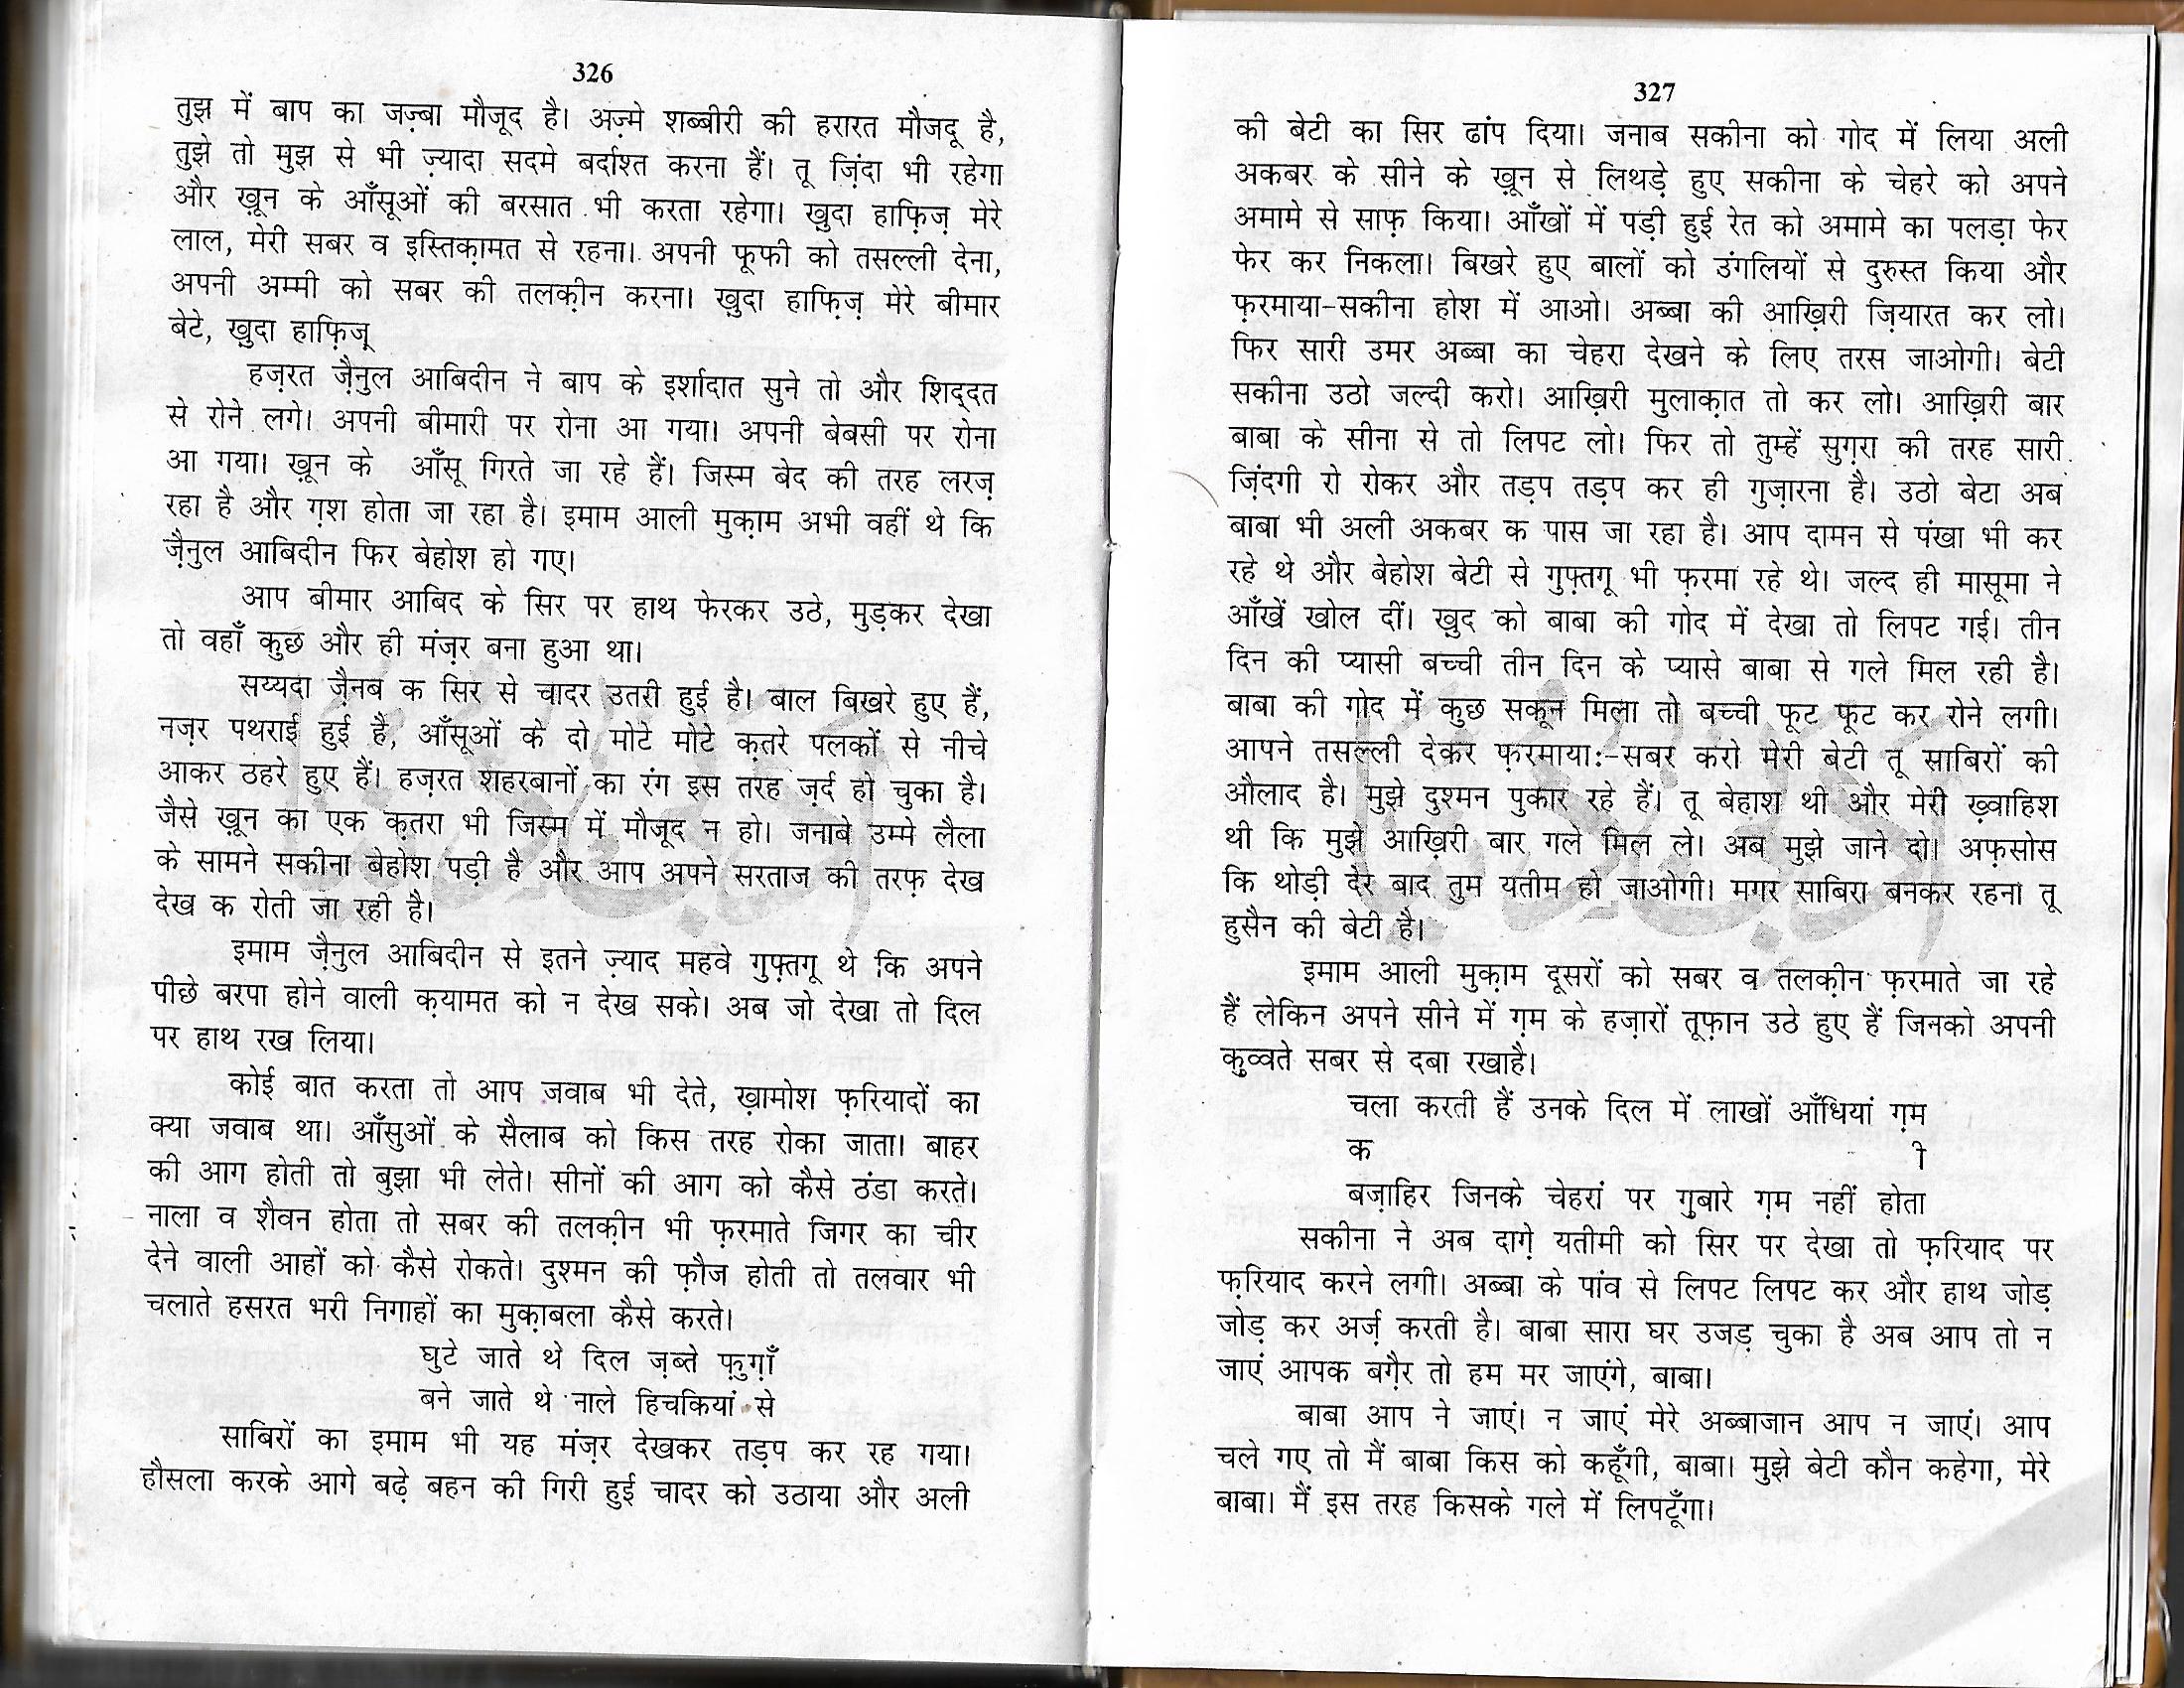 326
तुझ में बाप का जज़्बा मौजूद है। अज़्मे शब्बीरी की हरारत मौजदू है,
तुझे तो मुझ से भी ज़्यादा सदमे बर्दाश्त करना हैं। तू ज़िंदा भी रहेगा
और ख़ून के आँसूओं की बरसात भी करता रहेगा। ख़ुदा हाफ़िज़ मेरे
लाल, मेरी सबर व इस्तिक़ामत से रहना। अपनी फूफी को तसल्ली देना,
अपनी अम्मी को सबर की तलक़ीन करना। ख़ुदा हाफ़िज़ मेरे बीमार
बेटे, ख़ुदा हाफ़िज़्
हज़रत ज़ैनुल आबिदीन ने बाप के इर्शादात सुने तो और शिद्दत
से रोने लगे। अपनी बीमारी पर रोना आ गया। अपनी बेबसी पर रोना
आ गया। ख़ून के आँसू गिरते जा रहे हैं। जिस्म बेद की तरह लरज़
रहा है और ग़श होता जा रहा है। इमाम आली मुक़ाम अभी वहीं थे कि
ज़ैनुल आबिदीन फिर बेहोश हो गए।
आप बीमार आबिद के सिर पर हाथ फेरकर उठे, मुड़कर देखा
तो वहाँ कुछ और ही मंज़र बना हुआ था।
सय्यदा ज़ैनब क सिर से चादर उतरी हुई है। बाल बिखरे हुए हैं,
नज़र पथराई हुई है, आँसूओं के दो मोटे मोटे क़तरे पलकों से नीचे
आकर ठहरे हुए हैं। हज़रत शहरबानों का रंग इस तरह ज़र्द हो चुका है।
जैसे ख़ून का एक क़तरा भी जिस्म में मौजूद न हो। जनाबे उम्मे लैला
के सामने सकीना बेहोश पड़ी है और आप अपने सरताज की तरफ़ देख
देख क रोती जा रही है।
इमाम ज़ैनुल आबिदीन से इतने ज़्याद महवे गुफ़्तगू थे कि अपने
पीछे बरपा होने वाली क़यामत को न देख सके। अब जो देखा तो दिल
पर हाथ रख लिया।
कोई बात करता तो आप जवाब भी देते, ख़ामोश फ़रियादों का
क्या जवाब था। आँसुओं के सैलाब को किस तरह रोका जाता। बाहर
की आग होती तो बुझा भी लेते। सीनों की आग को कैसे ठंडा करते।
नाला व शैवन होता तो सबर की तलक़ीन भी फ़रमाते जिगर का चीर
देने वाली आहों को कैसे रोकते। दुश्मन की फ़ौज होती तो तलवार भी
चलाते हसरत भरी निगाहों का मुक़ाबला कैसे करते।
घुटे जाते थे दिल ज़ब्ते फ़ुग़ाँ
बने जाते थे नाले हिचकियां से
साबिरों का इमाम भी यह मंज़र देखकर तड़प कर रह गया।
हौसला करके आगे बढ़े बहन की गिरी हुई चादर को उठाया और अली
327
की बेटी का सिर ढांप दिया। जनाब सकीना को गोद में लिया अली
अकबर के सीने के ख़ून से लिथड़े हुए सकीना के चेहरे को अपने
अमामे से साफ़ किया। आँखों में पड़ी हुई रेत को अमामे का पलड़ा फेर
फेर कर निकला। बिखरे हुए बालों को उंगलियों से दुरुस्त किया और
फ़रमाया-सकीना होश में आओ। अब्बा की आख़िरी ज़ियारत कर लो।
फिर सारी उमर अब्बा का चेहरा देखने के लिए तरस जाओगी। बेटी
सकीना उठो जल्दी करो। आख़िरी मुलाक़ात तो कर लो। आख़िरी बार
बाबा के सीना से तो लिपट लो। फिर तो तुम्हें सुग़रा की तरह सारी
ज़िंदगी रो रोकर और तड़प तड़प कर ही गुज़ारना है। उठो बेटा अब
बाबा भी अली अकबर क पास जा रहा है। आप दामन से पंखा भी कर
रहे थे और बेहोश बेटी से गुफ़्तगू भी फ़रमा रहे थे। जल्द ही मासूमा ने
आँखें खोल दीं। ख़ुद को बाबा की गोद में देखा तो लिपट गई। तीन
दिन की प्यासी बच्ची तीन दिन के प्यासे बाबा से गले मिल रही है।
बाबा की गोद में कुछ सकून मिला तो बच्ची फूट फूट कर रोने लगी।
आपने तसल्ली देकर फ़रमायाः-सबर करो मेरी बेटी तू साबिरों की
औलाद है। मुझे दुश्मन पुकार रहे हैं। तू बेहाश थी और मेरी ख़्वाहिश
थी कि मुझे आख़िरी बार गले मिल ले। अब मुझे जाने दो। अफ़सोस
कि थोड़ी देर बाद तुम यतीम हो जाओगी। मगर साबिरा बनकर रहना तू
हुसैन की बेटी है।
इमाम आली मुक़ाम दूसरों को सबर व तलक़ीन फ़रमाते जा रहे
हैं लेकिन अपने सीने में ग़म के हज़ारों तूफ़ान उठे हुए हैं जिनको अपनी
कुव्वते सबर से दबा रखाहै।
चला करती हैं उनके दिल में लाखों आँधियां ग़म
क ी
बज़ाहिर जिनके चेहरां पर गुबारे ग़म नहीं होता
सकीना ने अब दाग़े यतीमी को सिर पर देखा तो फ़रियाद पर
फ़रियाद करने लगी। अब्बा के पांव से लिपट लिपट कर और हाथ जोड़
जोड़ कर अर्ज़ करती है। बाबा सारा घर उजड़ चुका है अब आप तो न
जाएं आपक बग़ैर तो हम मर जाएंगे, बाबा।
बाबा आप ने जाएं। न जाएं मेरे अब्बाजान आप न जाएं। आप
चले गए तो मैं बाबा किस को कहूँगी, बाबा। मुझे बेटी कौन कहेगा, मेरे
बाबा। मैं इस तरह किसके गले में लिपटूँगा।